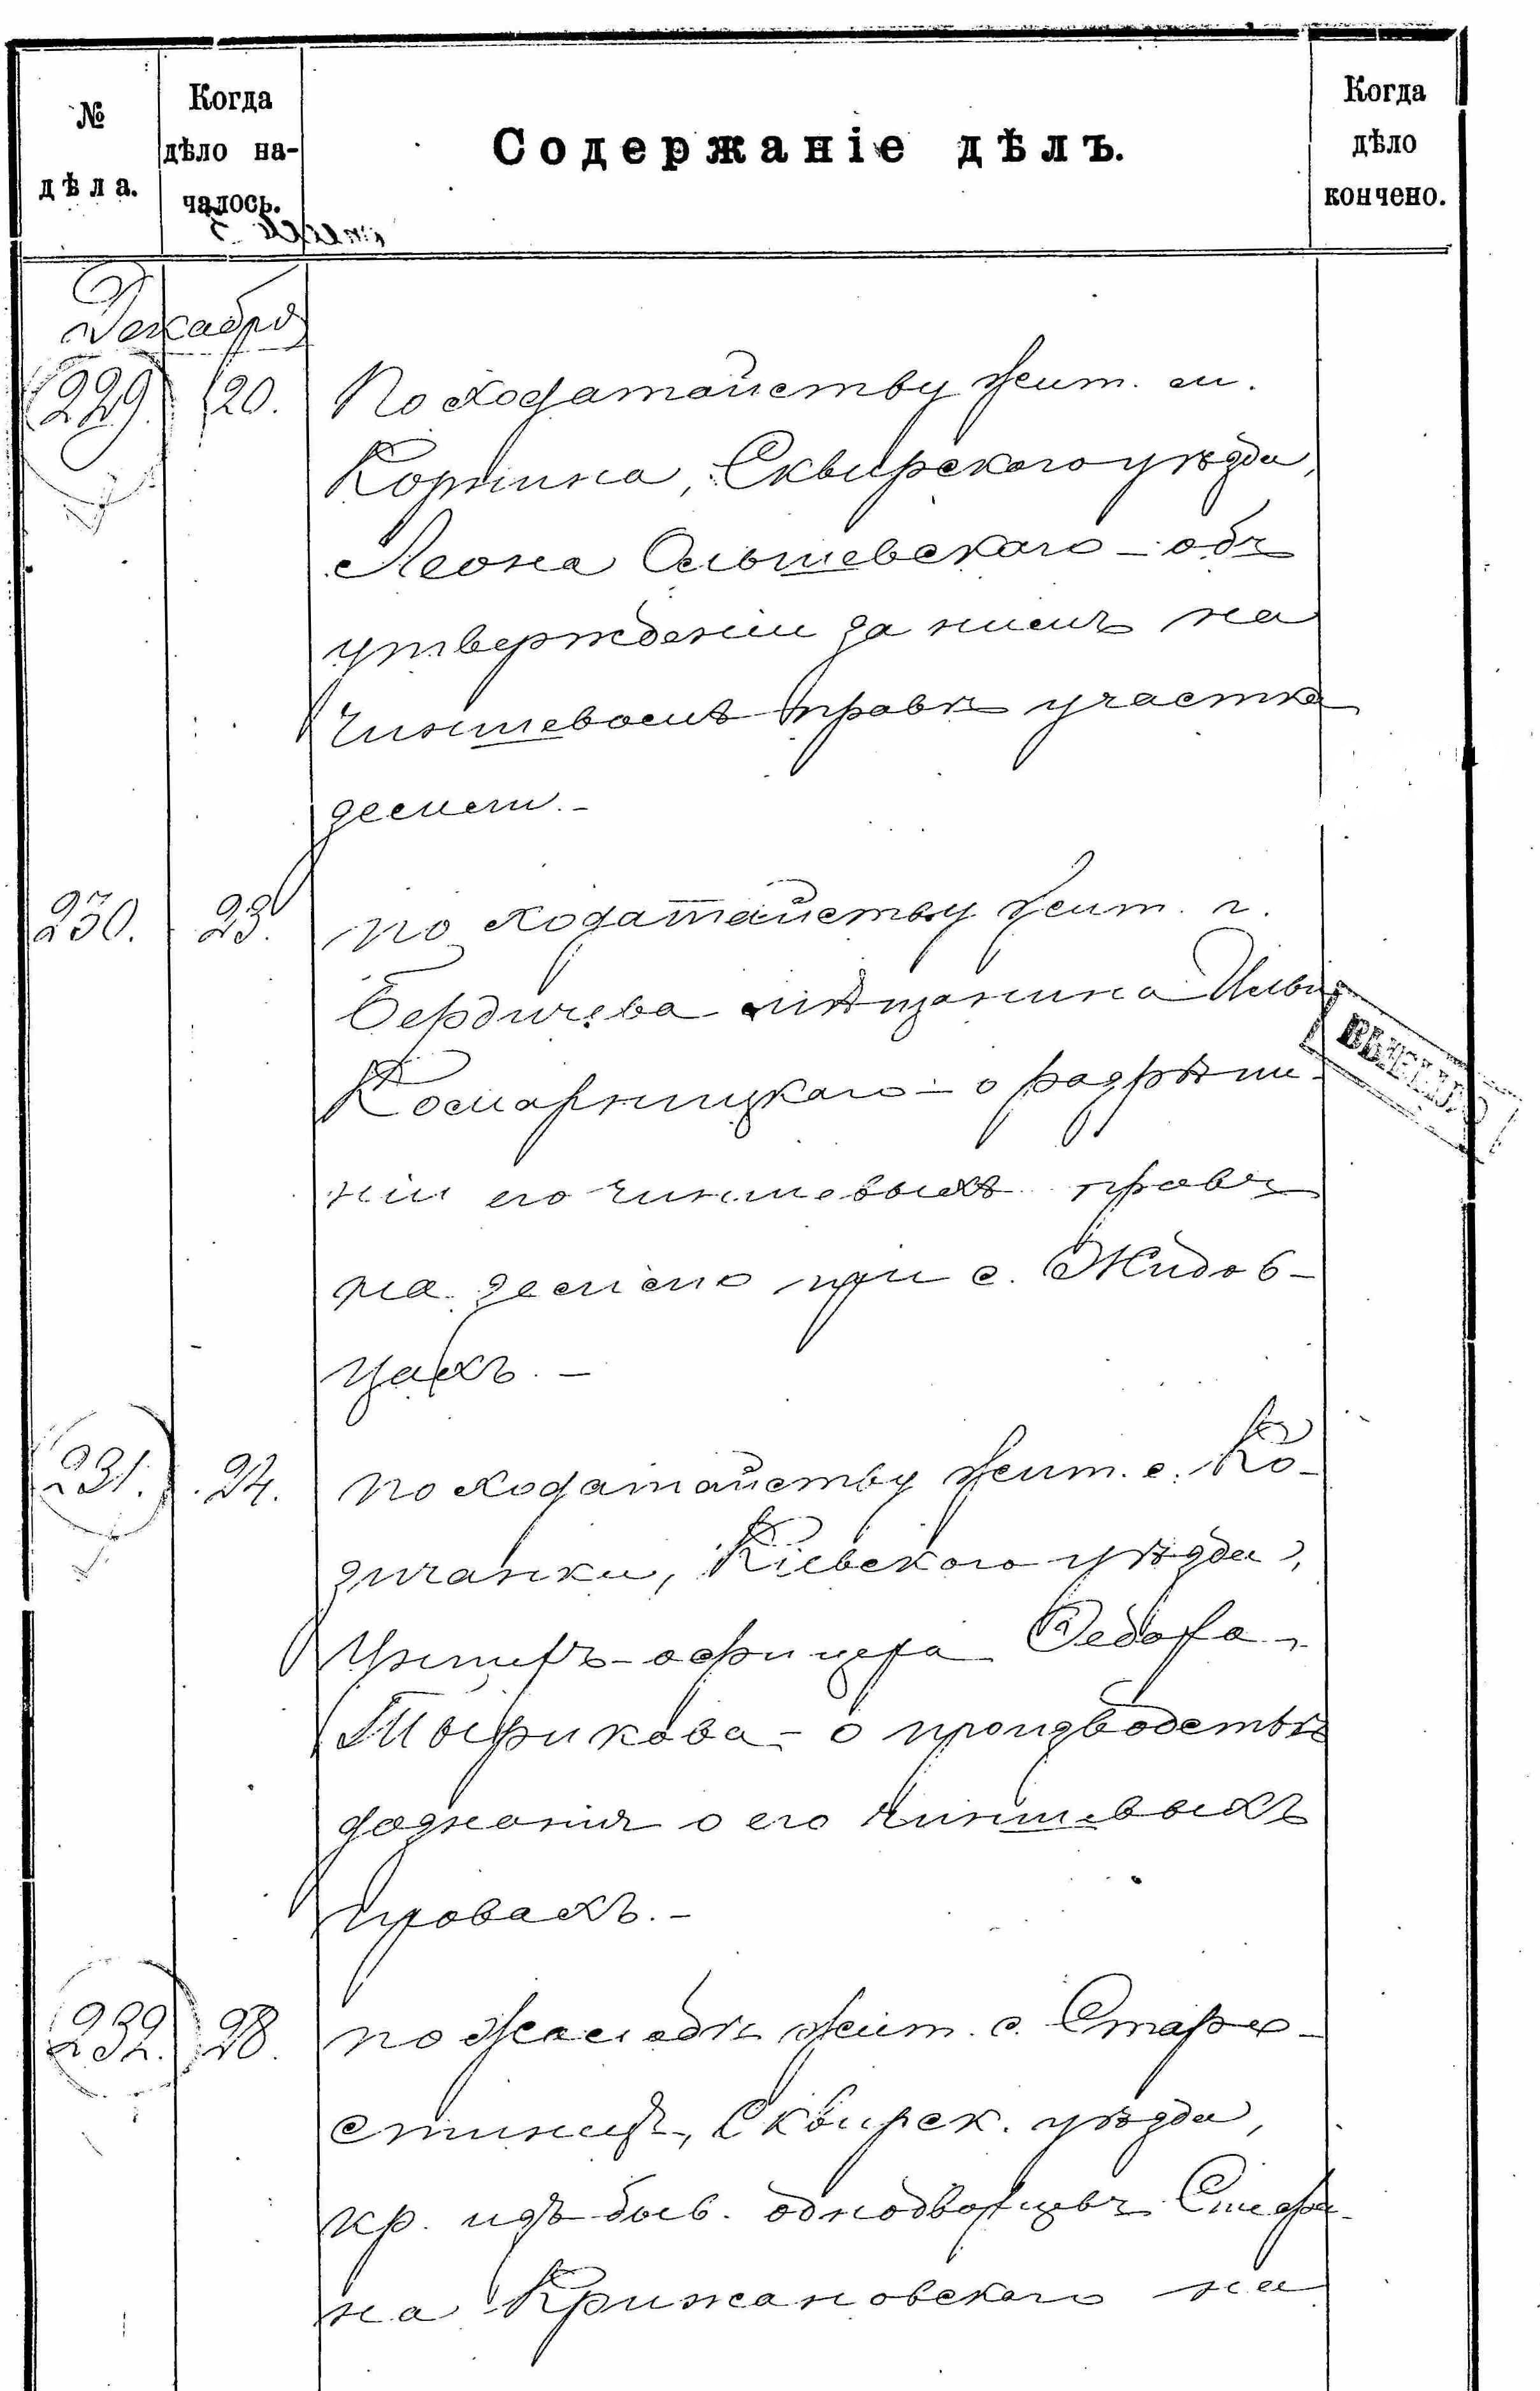 №
дѣла.
Когда
дѣло на-
чалось.
Содержаніе дѣлъ.
Когда
дѣло
кончено.
Декабря
229. 20. По ходатайству жит. м.
Корнина, Сквирскаго уѣзда,
Леона Ольшевскаго – объ
утвержденіи за нимъ на
чиншевомъ правѣ участка
земли. –
230. 23. по ходатайству жит. г.
Бердичева мѣщанина Ильи
Комарницкаго – о разрѣше-
ніи его чиншевыхъ правъ
на землю при с. Жидов-
цахъ. –
231. 24. по ходатайству жит. с. Ко-
зичанки, Кіевскаго уѣзда,
Унтеръ-офицера Федора
Тырикова – о производствѣ
дознанія о его чиншевыхъ
правахъ. –
232. 28. по жалобѣ жит. с. Старо-
стинецъ, Сквирск. уѣзда,
кр. изъ быв. однодворцевъ Стефа-
на Крижановскаго на